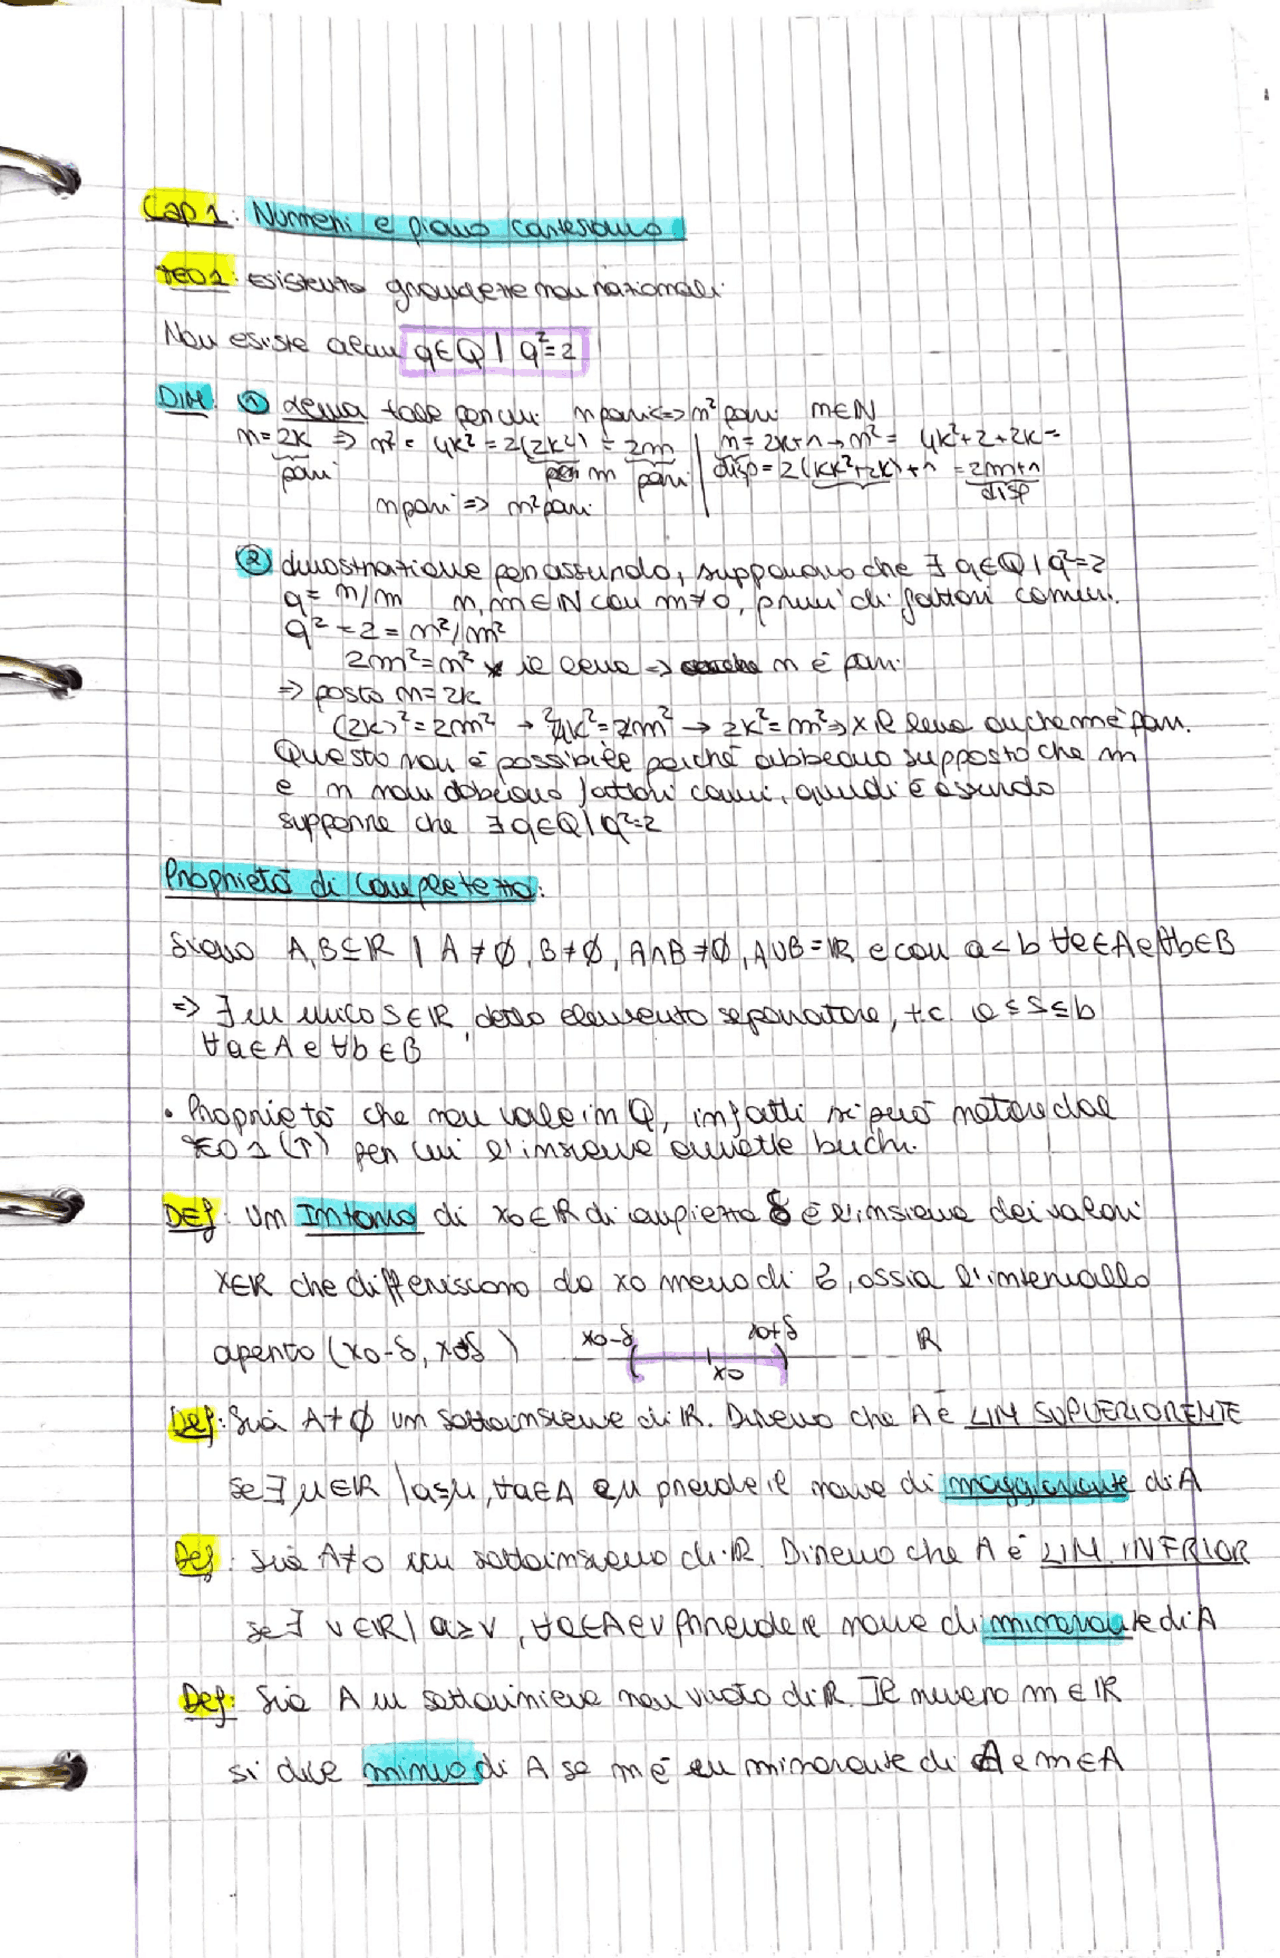 Cap 1: Numeri e piano cartesiano
TEO1: esistenza grandezze non razionali
Non esiste alcun q∈Q | q²=2
DIM. ① Lemma tale per cui n pari <=> n² pari n∈N
n=2k => n² = 4k² = 2(2k²) = 2m | n=2k+1 → n² = 4k²+2+2k=
pari m pari | disp = 2(kk²+2k)+1 = 2m+1
n pari => n² pari disp
② dimostrazione per assurdo, supponiamo che ∃ q∈Q | q²=2
q = n/m n, m ∈ N con m≠0, primi di fattori comuni.
q² = 2 = n²/m²
2m²=n² x il lema => n è pari
=> posto n=2k
(2k)²=2m² → 4k²=2m² → 2k²=m² => x il lema anche m è pari.
Questo non è possibile poiché abbiamo supposto che m
e n non abbiano fattori comuni, quindi è assurdo
supporre che ∃ q∈Q | q²=2
Proprietà di completezza:
Siano A,B⊆R | A≠∅, B≠∅, A∩B≠∅, A∪B=R e con a<b ∀a∈A e ∀b∈B
=> ∃ un unico S∈R, detto elemento separatore, t.c. a≤S≤b
∀a∈A e ∀b∈B
• Proprietà che non vale in Q, infatti si può notare dal
TEO 1 (↑) per cui l'insieme ammette buchi.
DEf: Un Intorno di x0∈R di ampiezza δ è l'insieme dei valori
x∈R che differiscono da x0 meno di δ, ossia l'intervallo
aperto (x0-δ, x0+δ) x0-δ x0 x0+δ R
Def: Sia A≠∅ un sottoinsieme di R. Diremo che A è LIM SUPUERIORENTE
se ∃ μ∈R | a≤μ, ∀a∈A e μ prende il nome di maggiorante di A
Def: Sia A≠0 un sottoinsieme di R. Diremo che A è LIM. INFRIOR
se ∃ v∈R | a≥v, ∀a∈A e v prende il nome di minorante di A
Def: Sia A un sottoinsieme non vuoto di R. Il numero m∈R
si dice minimo di A se m è un minorante di A e m∈A